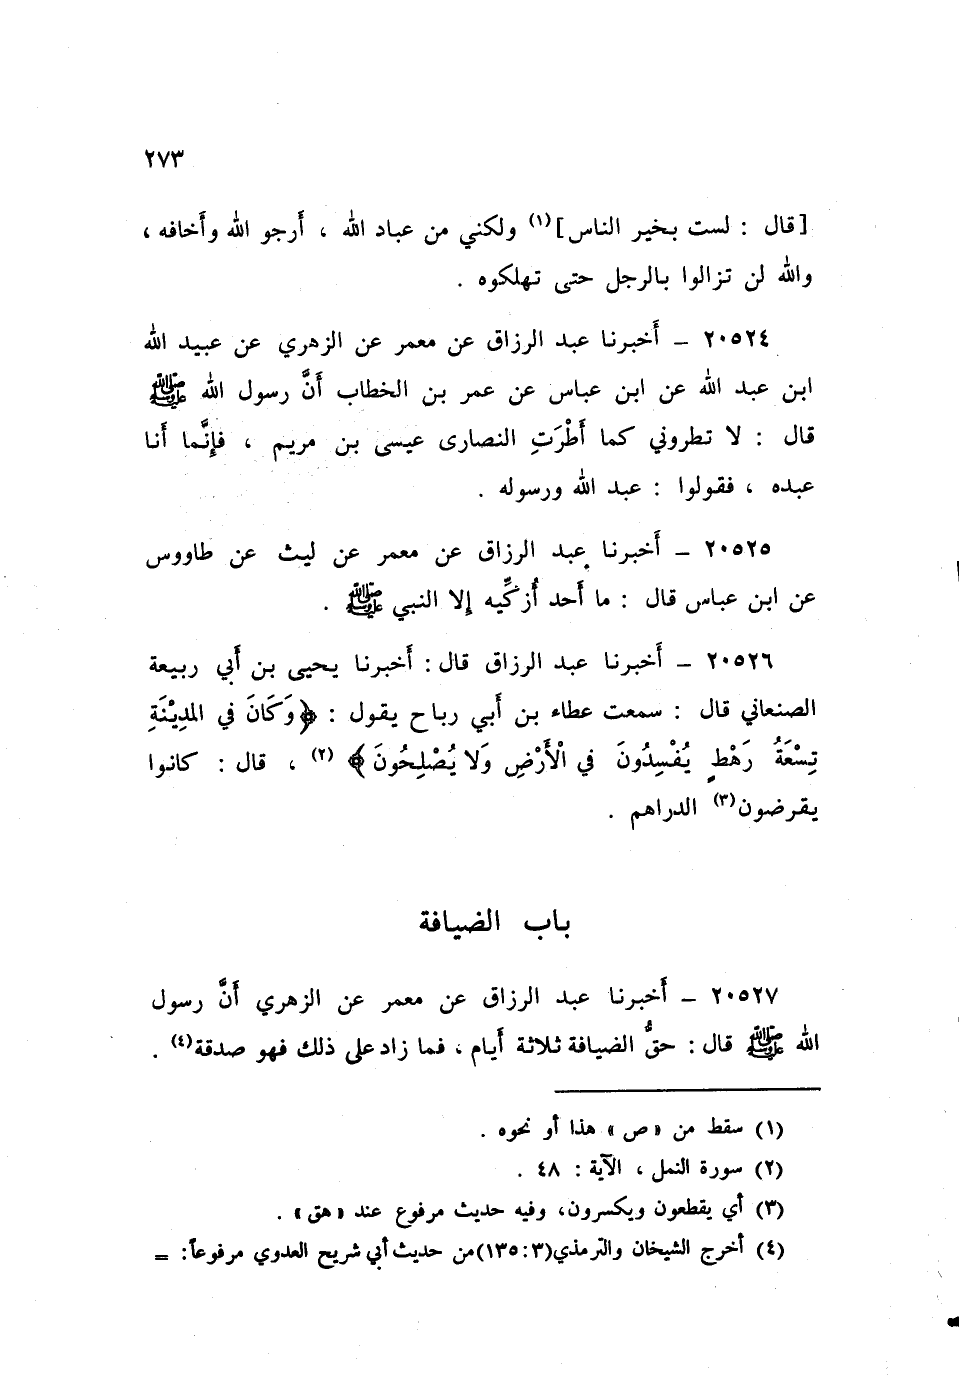 ٢٧٣
[قال : لست بخير الناس](١) ولكني من عباد الله ، أَرجو الله وأَخافه ،
والله لن تزالوا بالرجل حتى تهلكوه .
٢٠٥٢٤ – أَخبرنا عبد الرزاق عن معمر عن الزهري عن عبيد الله
ابن عبد الله عن ابن عباس عن عمر بن الخطاب أَنَّ رسول الله ﷺ
قال : لا تطروني كما أَطْرَتِ النصارى عيسى بن مريم ، فإِنَّما أَنا
عبده ، فقولوا : عبد الله ورسوله .
٢٠٥٢٥ – أَخبرنا عبد الرزاق عن معمر عن ليث عن طاووس
عن ابن عباس قال : ما أَحد أُزكِّيه إلا النبي ﷺ .
٢٠٥٢٦ – أَخبرنا عبد الرزاق قال : أَخبرنا يحيى بن أَبي ربيعة
الصنعاني قال : سمعت عطاء بن أَبي رباح يقول : ﴿وَكَانَ في المَدِيْنَةِ
تِسْعَةُ رَهْطٍ يُفْسِدُونَ في الْأَرْضِ وَلَا يُصْلِحُونَ﴾ (٢) ، قال : كانوا
يقرضون(٣) الدراهم .
باب الضيافة
٢٠٥٢٧ – أَخبرنا عبد الرزاق عن معمر عن الزهري أَنَّ رسول
الله ﷺ قال : حقُّ الضيافة ثلاثة أَيام ، فما زاد على ذلك فهو صدقة(٤) .
(١) سقط من «ص» هذا أو نحوه .
(٢) سورة النمل ، الآية : ٤٨ .
(٣) أي يقطعون ويكسرون، وفيه حديث مرفوع عند «هق» .
(٤) أخرج الشيخان والترمذي(٣ : ١٣٥)من حديث أبي شريح العدوي مرفوعاً: =